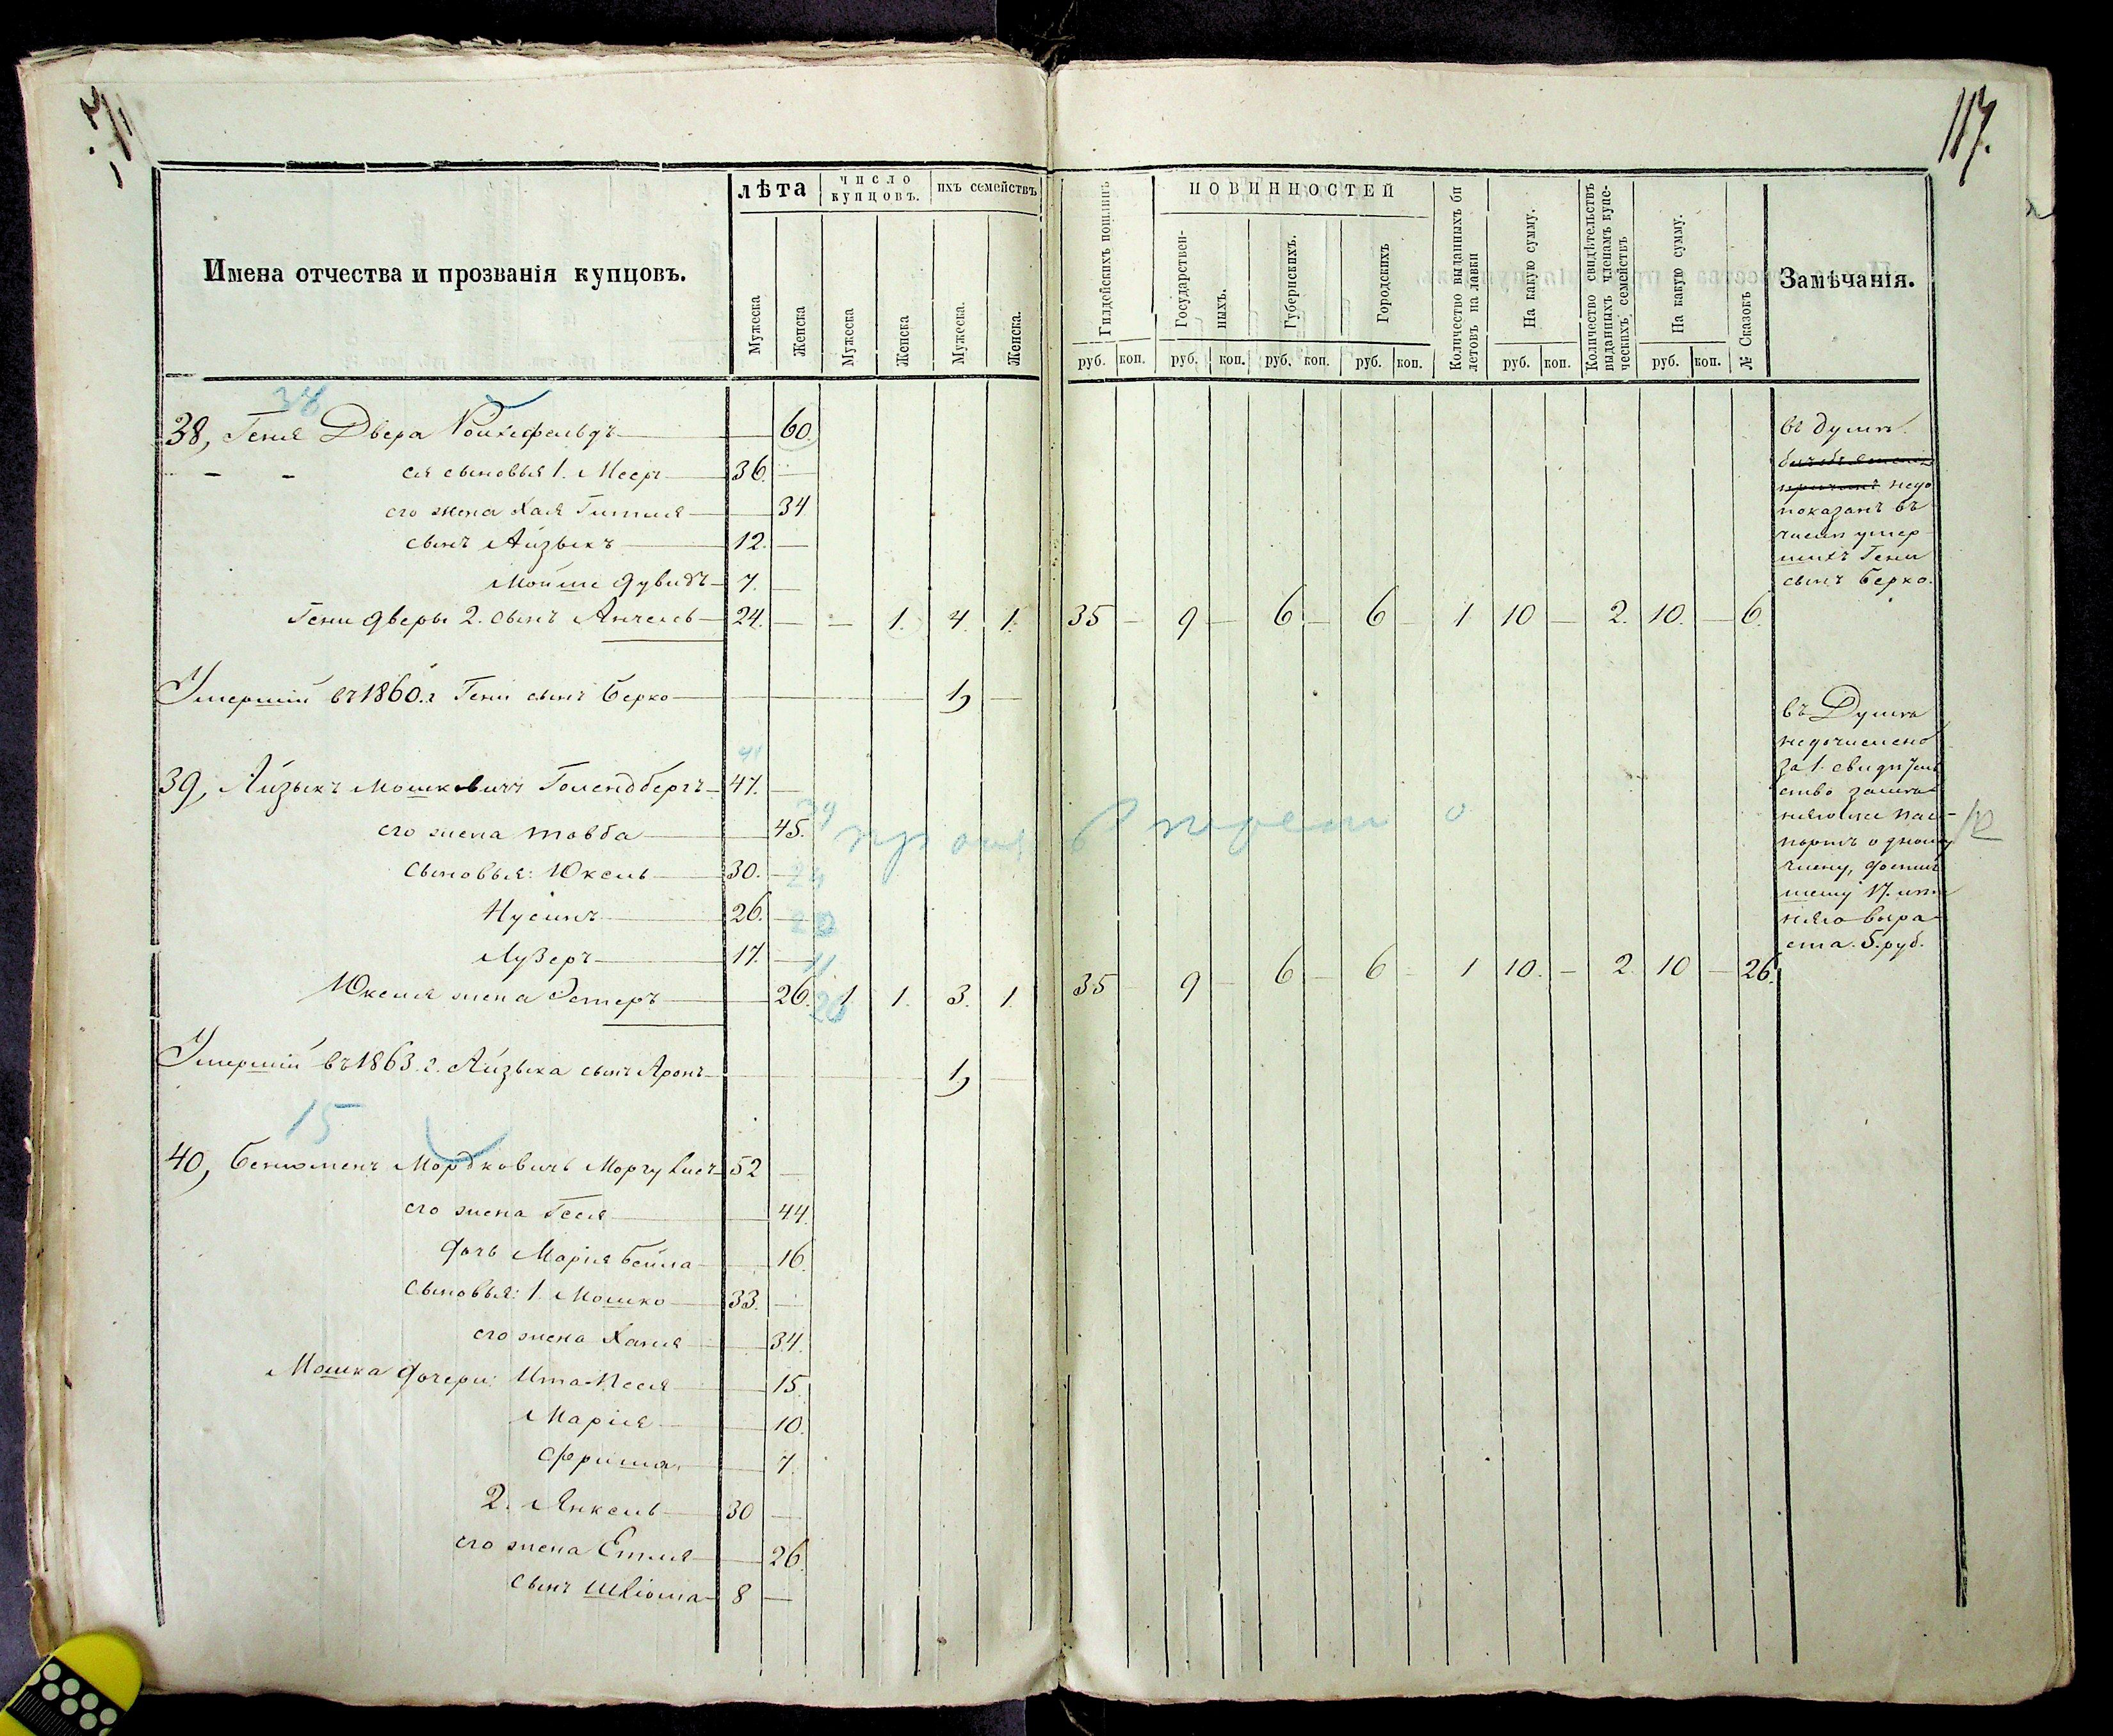 117.
лѣта
число купцовъ.
ихъ семействъ
Имена отчества и прозванія купцовъ.
Мужеска
Женска
Мужеска
Женска
Мужеска.
Женска.
Гильдейскихъ пошлинъ
ПОВИННОСТЕЙ
Государственныхъ.
Губернскихъ.
Городскихъ
Количество выданныхъ билетовъ на лавки
На какую сумму.
Количество свидѣтельствъ выданныхъ членамъ купеческихъ семействъ
На какую сумму.
№ Сказокъ
Замѣчанія.
руб. коп. руб. коп. руб. коп. руб. коп. руб. коп. руб. коп.
38
38, Геня Двера 60.
ея сыновья 1. Меер 36.
его жена Хая Гитля 34
сынъ Айзыкъ 12.
Мойше Дувидъ 7.
Гени Дверы 2. сынъ Анчель 24. 1. 4. 1. 35 9 6 6 1 10 2. 10. 6.
показанъ въ
числѣ умер
шихъ Гени
сынъ Берко.
Умершій въ 1860. г Гени сынъ Берко 1,
39, Айзыкъ Мошковичъ Голендбергъ 47.
его жена Товба 45.
сыновья: Юкель 30.
Нусинъ 26.
Лузеръ 17.
Юкеля жена Эстеръ 26. 1 1. 3. 1. 35 9 6 6 1 10. 2. 10 26.
недочислено
за 1. свидѣтель
ство
портъ одному
члену, достиг
шему 17. лѣт
няго возра
ста. 5. руб.
Умершій въ 1863. г. Айзыка сынъ Аронъ 1,
15
40, Бенюменъ Мордковичъ Моргулисъ 52
его жена Геся 44.
дочь Марія Бейла 16.
сыновья: 1. Мошко 33.
его жена Ханя 34.
Мошка дочери: Ита-Песя 15.
Марія 10.
Фрима 7.
2. Янкель 30
его жена Етля 26.
сынъ Шліома 8